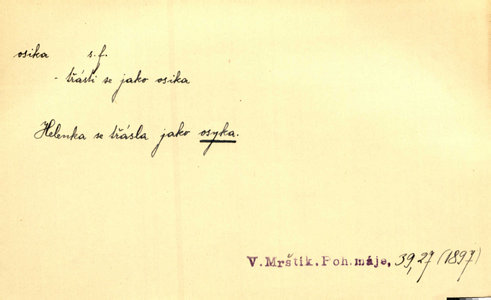 osika s.f.
- třásti se jako osika
Helenka se třásla jako osyka.
V. Mrštík. Poh. máje, 39,27 (1897)